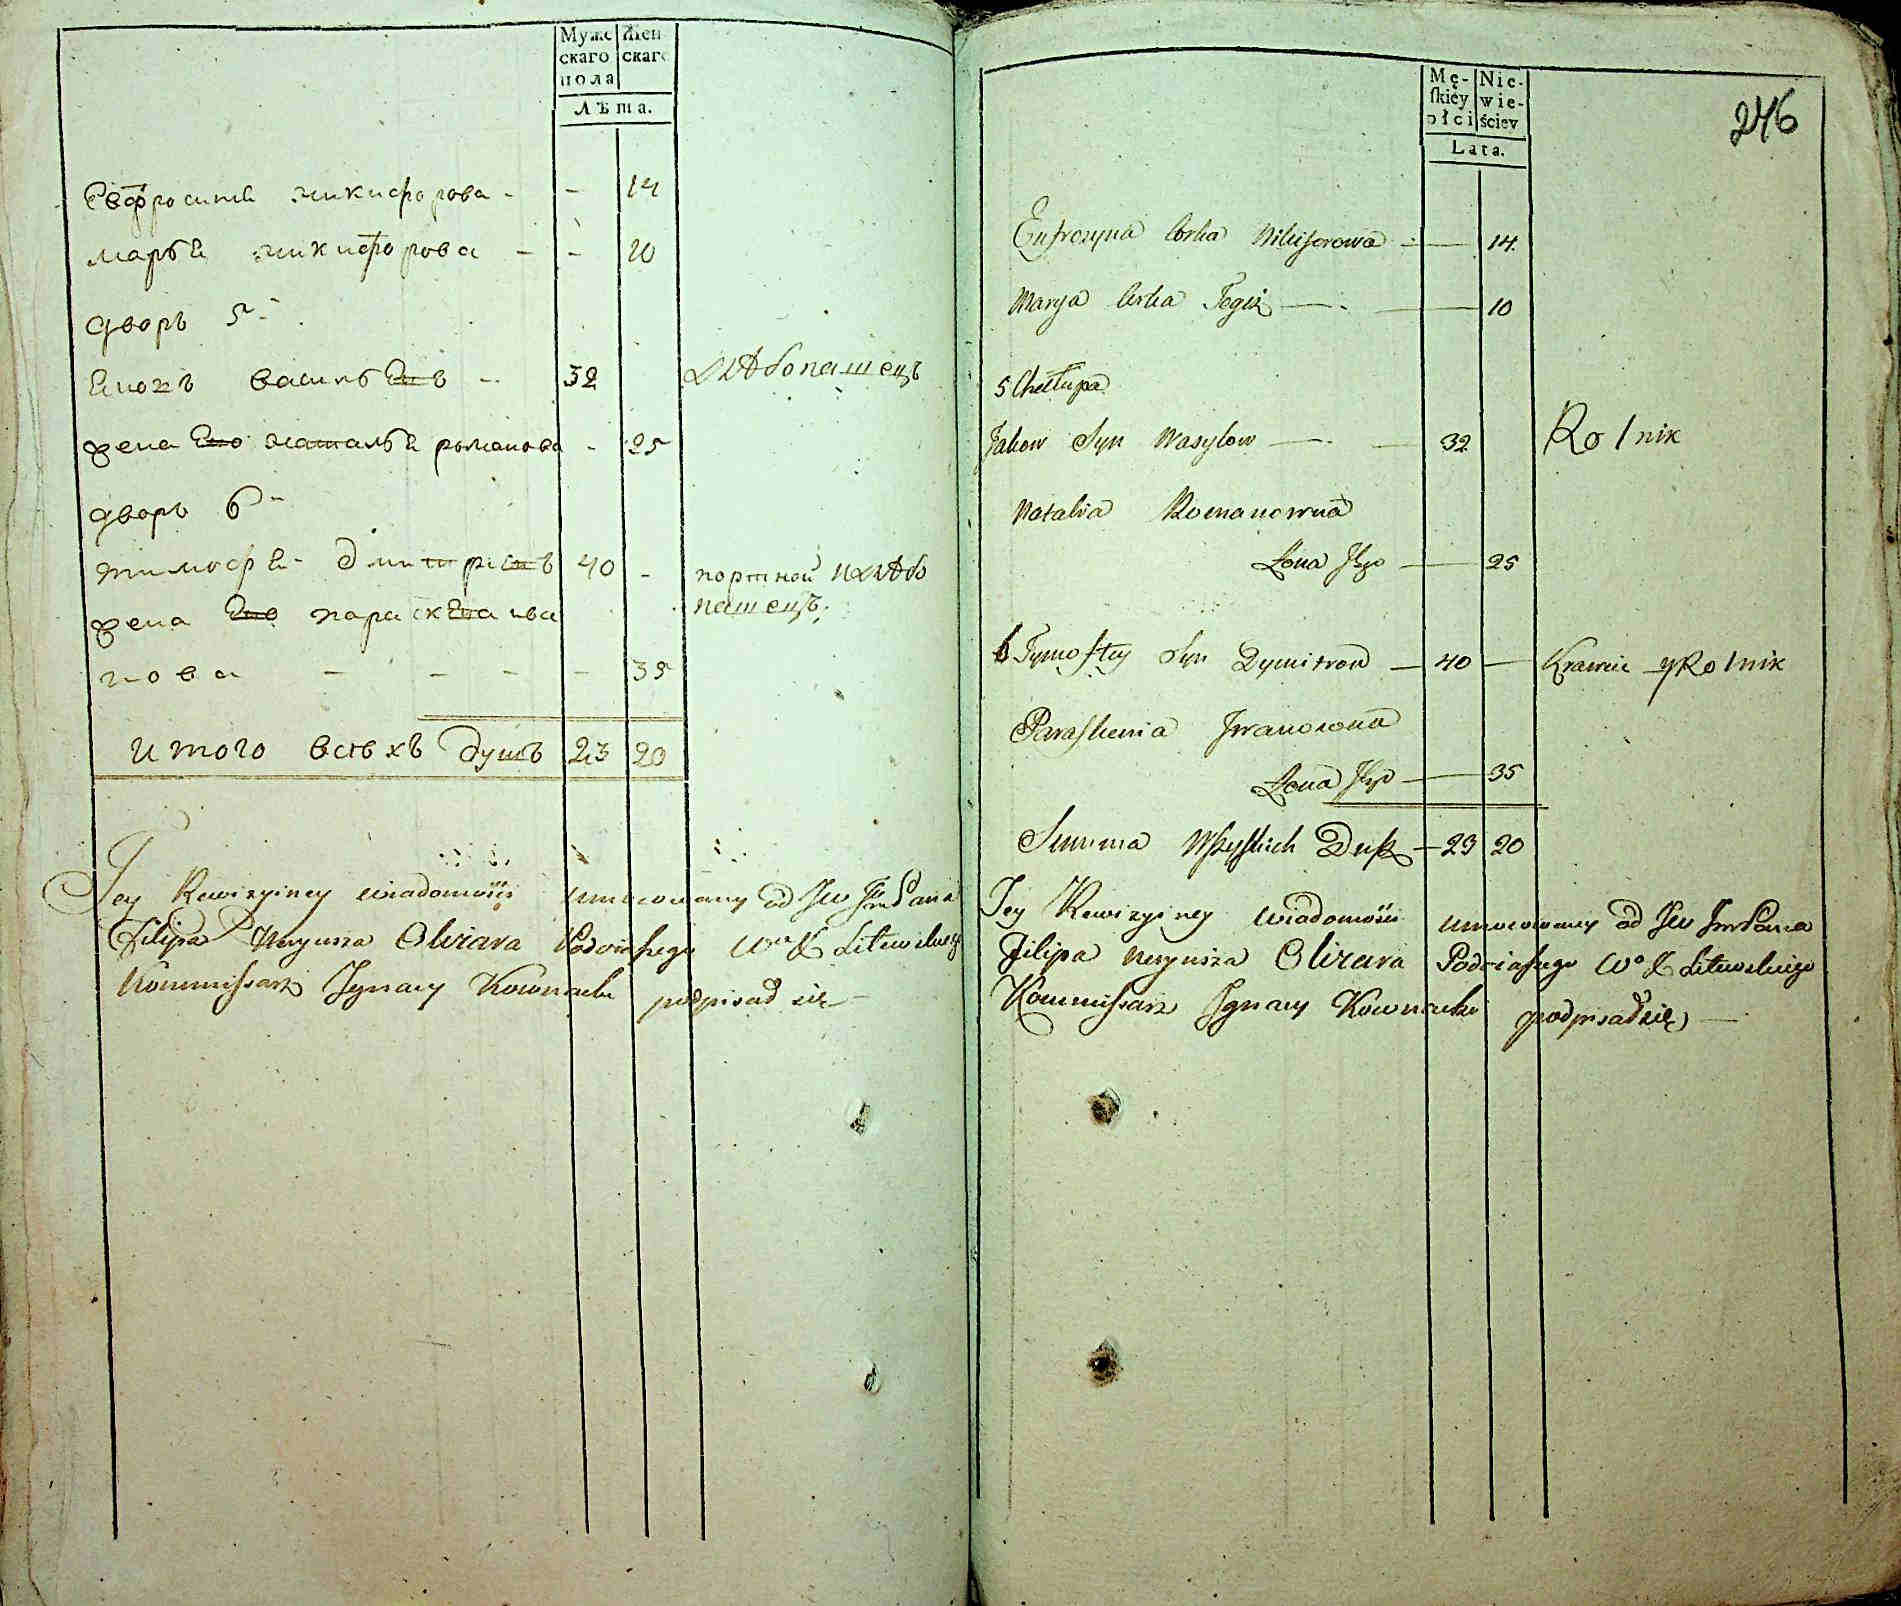 Муже
скаго
пола
Жен
скаго
Лѣта.
Евфросинѣ никифорова - - 14
марѣѣ никифорова - - 10
дворъ 5й
Ековъ васильевъ - 32 хлѣбопашецъ
жена Его наталѣѣ романова - 25
дворъ 6й
тимофѣй дмитриевъ 40 - портной ихлѣбо
жена Его параскева ива пашецъ.
нова - - - - - 35
итого всѣхъ душъ 23 20
Tey Rewizyiney wiadomości umocowany od JW JmPana
Filipa Neryusza Olizara Podczaszego Wo X Litewskiego
Kommissarz Jgnacy Kownacki podpisał się
246
Mę-
skiey
płci
Nie-
wie-
ściey
Lata.
Eufrozyna Corka Nikiforowa — 14.
Marya Corka Tegoż — 10
5 Chałupa
Jakow Syn Wasylow — 32 Rolnik
Natalia Romanowna
Żona Jego — 25
6 Tymoftey Syn Dymitrow — 40 — Krawiec y Rolnik
Paraskewia Jwanowna
Żona Jego — 35
Summa Wszystkich Dusz — 23 20
Tey Rewizyiney wiadomości umocowany od JW JmPana
Filipa Neryusza Olizara Podczaszego Wo X Litewskiego
Kommissarz Jgnacy Kownacki podpisał się —